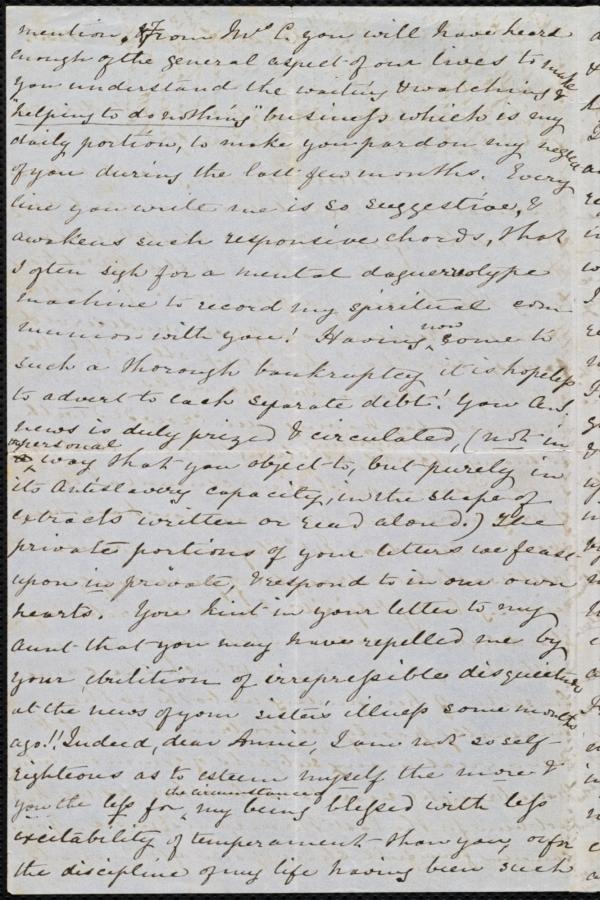 mention. From Mrs C. you will have heard
enough of the general aspect of our lives to make
you understand the waiting & watching &
"helping to do nothing" business which is my
daily portion, to make you pardon my neglect
of you during the last few months. Every
line you write me is so suggestive, &
awakens such responsive chords, that
I often sigh for a mental daguerreotype
machine to record my spiritual com
munion with you! Having now come to
such a thorough bankruptcy it is hopeless
to advert to each separate debt! Your A.S.
news is duly prized & circulated, (not in
a personal way that you object to, but purely in
its Antislavery capacity, in the shape of
extracts written or read aloud.) The
private portions of your letters we feast
upon in private, & respond to in our own
hearts. You hint in your letter to my
aunt that you may have repelled me by
your ebullition of irrepressible disquietude
at the news of your sister's illness some months
ago!! Indeed, dear Annie, I am not so self-
righteous as to esteem myself the more &
you the less for the circumstance of my being blessed with less
excitability of temperament than you, or for
the discipline of my life having been such